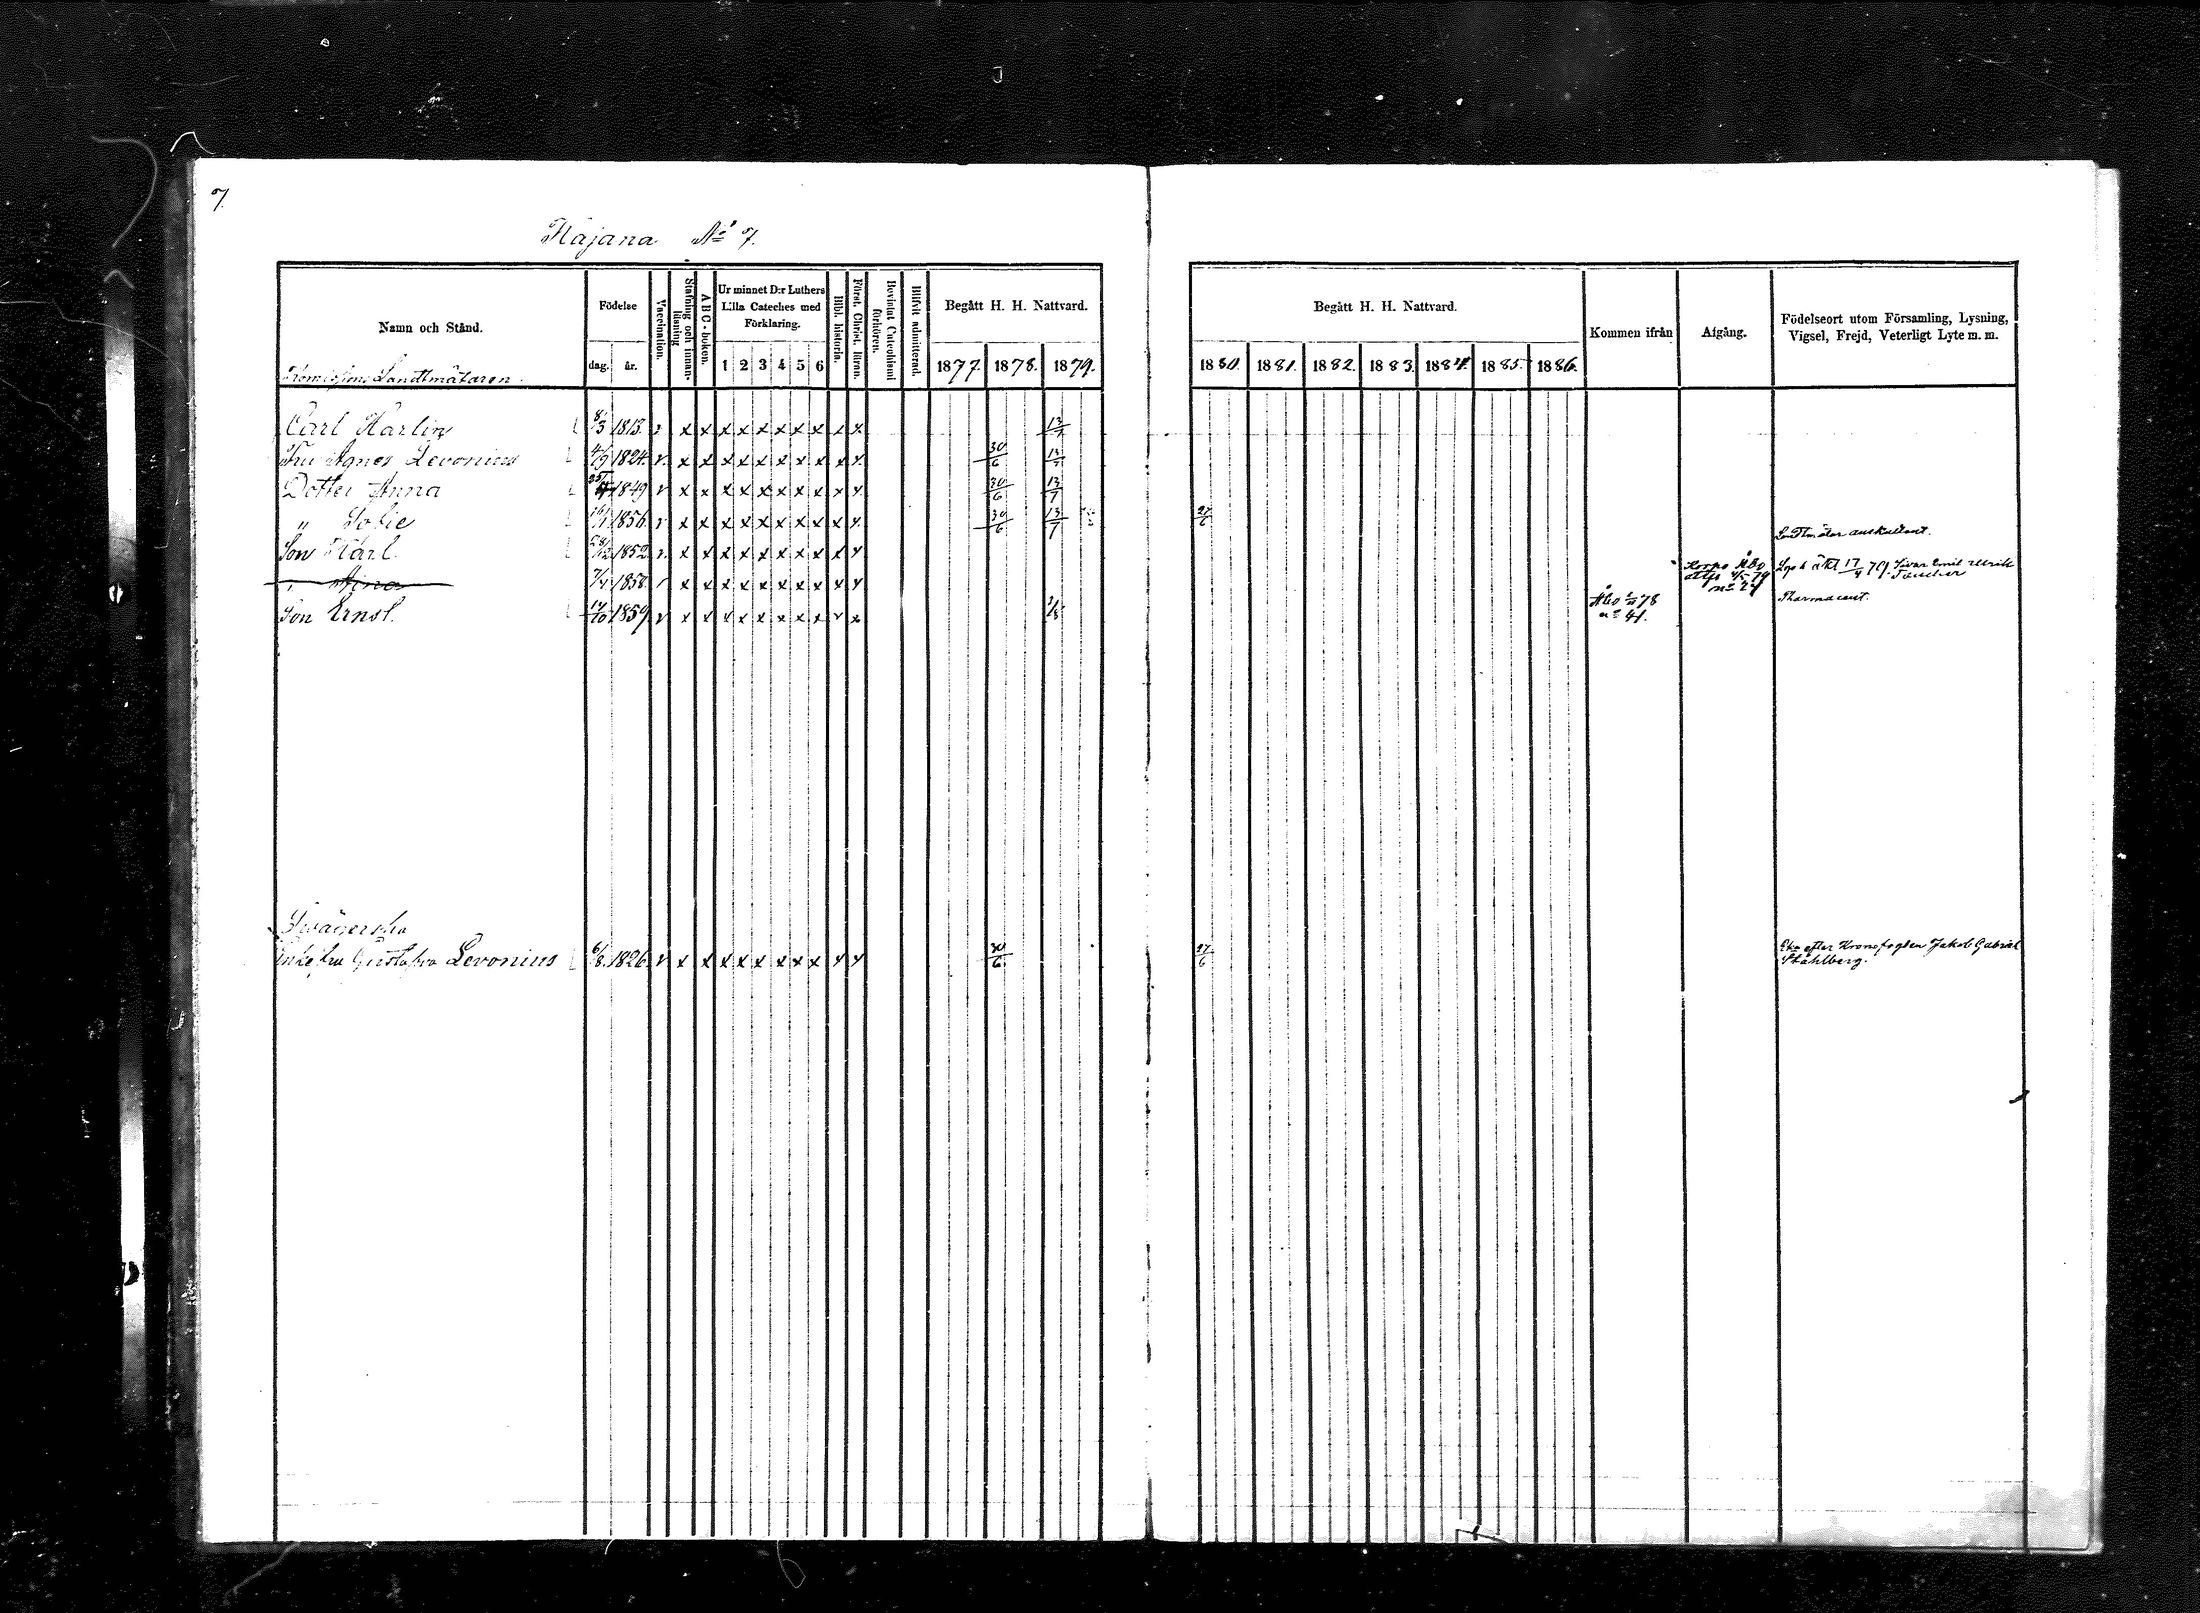 7.
Kajana № 7.
Namn och Stånd.
Födelse
dag. år.
Vaccination.
Stafning och innanläsning
ABC-boken.
Ur minnet D:r Luthers Lilla Cateches med Förklaring.
1 2 3 4 5 6
Bibl. historia.
Först. Christ. läran.
Bevistat Catechismi förhören.
Blifvit admitterad.
Begått H. H. Nattvard.
1877. 1878. 1879.
Begått H. H. Nattvard.
1880. 1881. 1882. 1883. 1884. 1885. 1886.
Kommen ifrån
Afgång.
Födelseort utom Församling, Lysning, Vigsel, Frejd, Veterligt Lyte m. m.
Landtmätaren.
Carl Karlin 8/3 1813. v x x x x x x x x x x 13/7
Fru Agnes Levonius 4/9 1824. v. x x x x x x x x x x 30/6 13/7
Dotter Anna 1849 v x x x x x x x x x x 30/6 13/7
" Sofie 16/1 1856. v x x x x x x x x x x 30/6 13/7 27/6
Son Karl. 28/12 1852. v. x x x x x x x x x x Landtmätar auskultant.
" Aina 7/4 1858. v x x x x x x x x x x Korpo Åbo 79 n:o 27 17/4 79. Ivar Emil
Son Ernst. 14/10 1859. v x x x x x x x x x x Åbo 78 n:o 41. Pharmaceut.
Svägerska
Enkefru Gustafva Levonius 6/8. 1826. v x x x x x x x x x x 30/6. 27/6 Eka efter Kronofogden Jakob Gabriel
Ståhlberg.